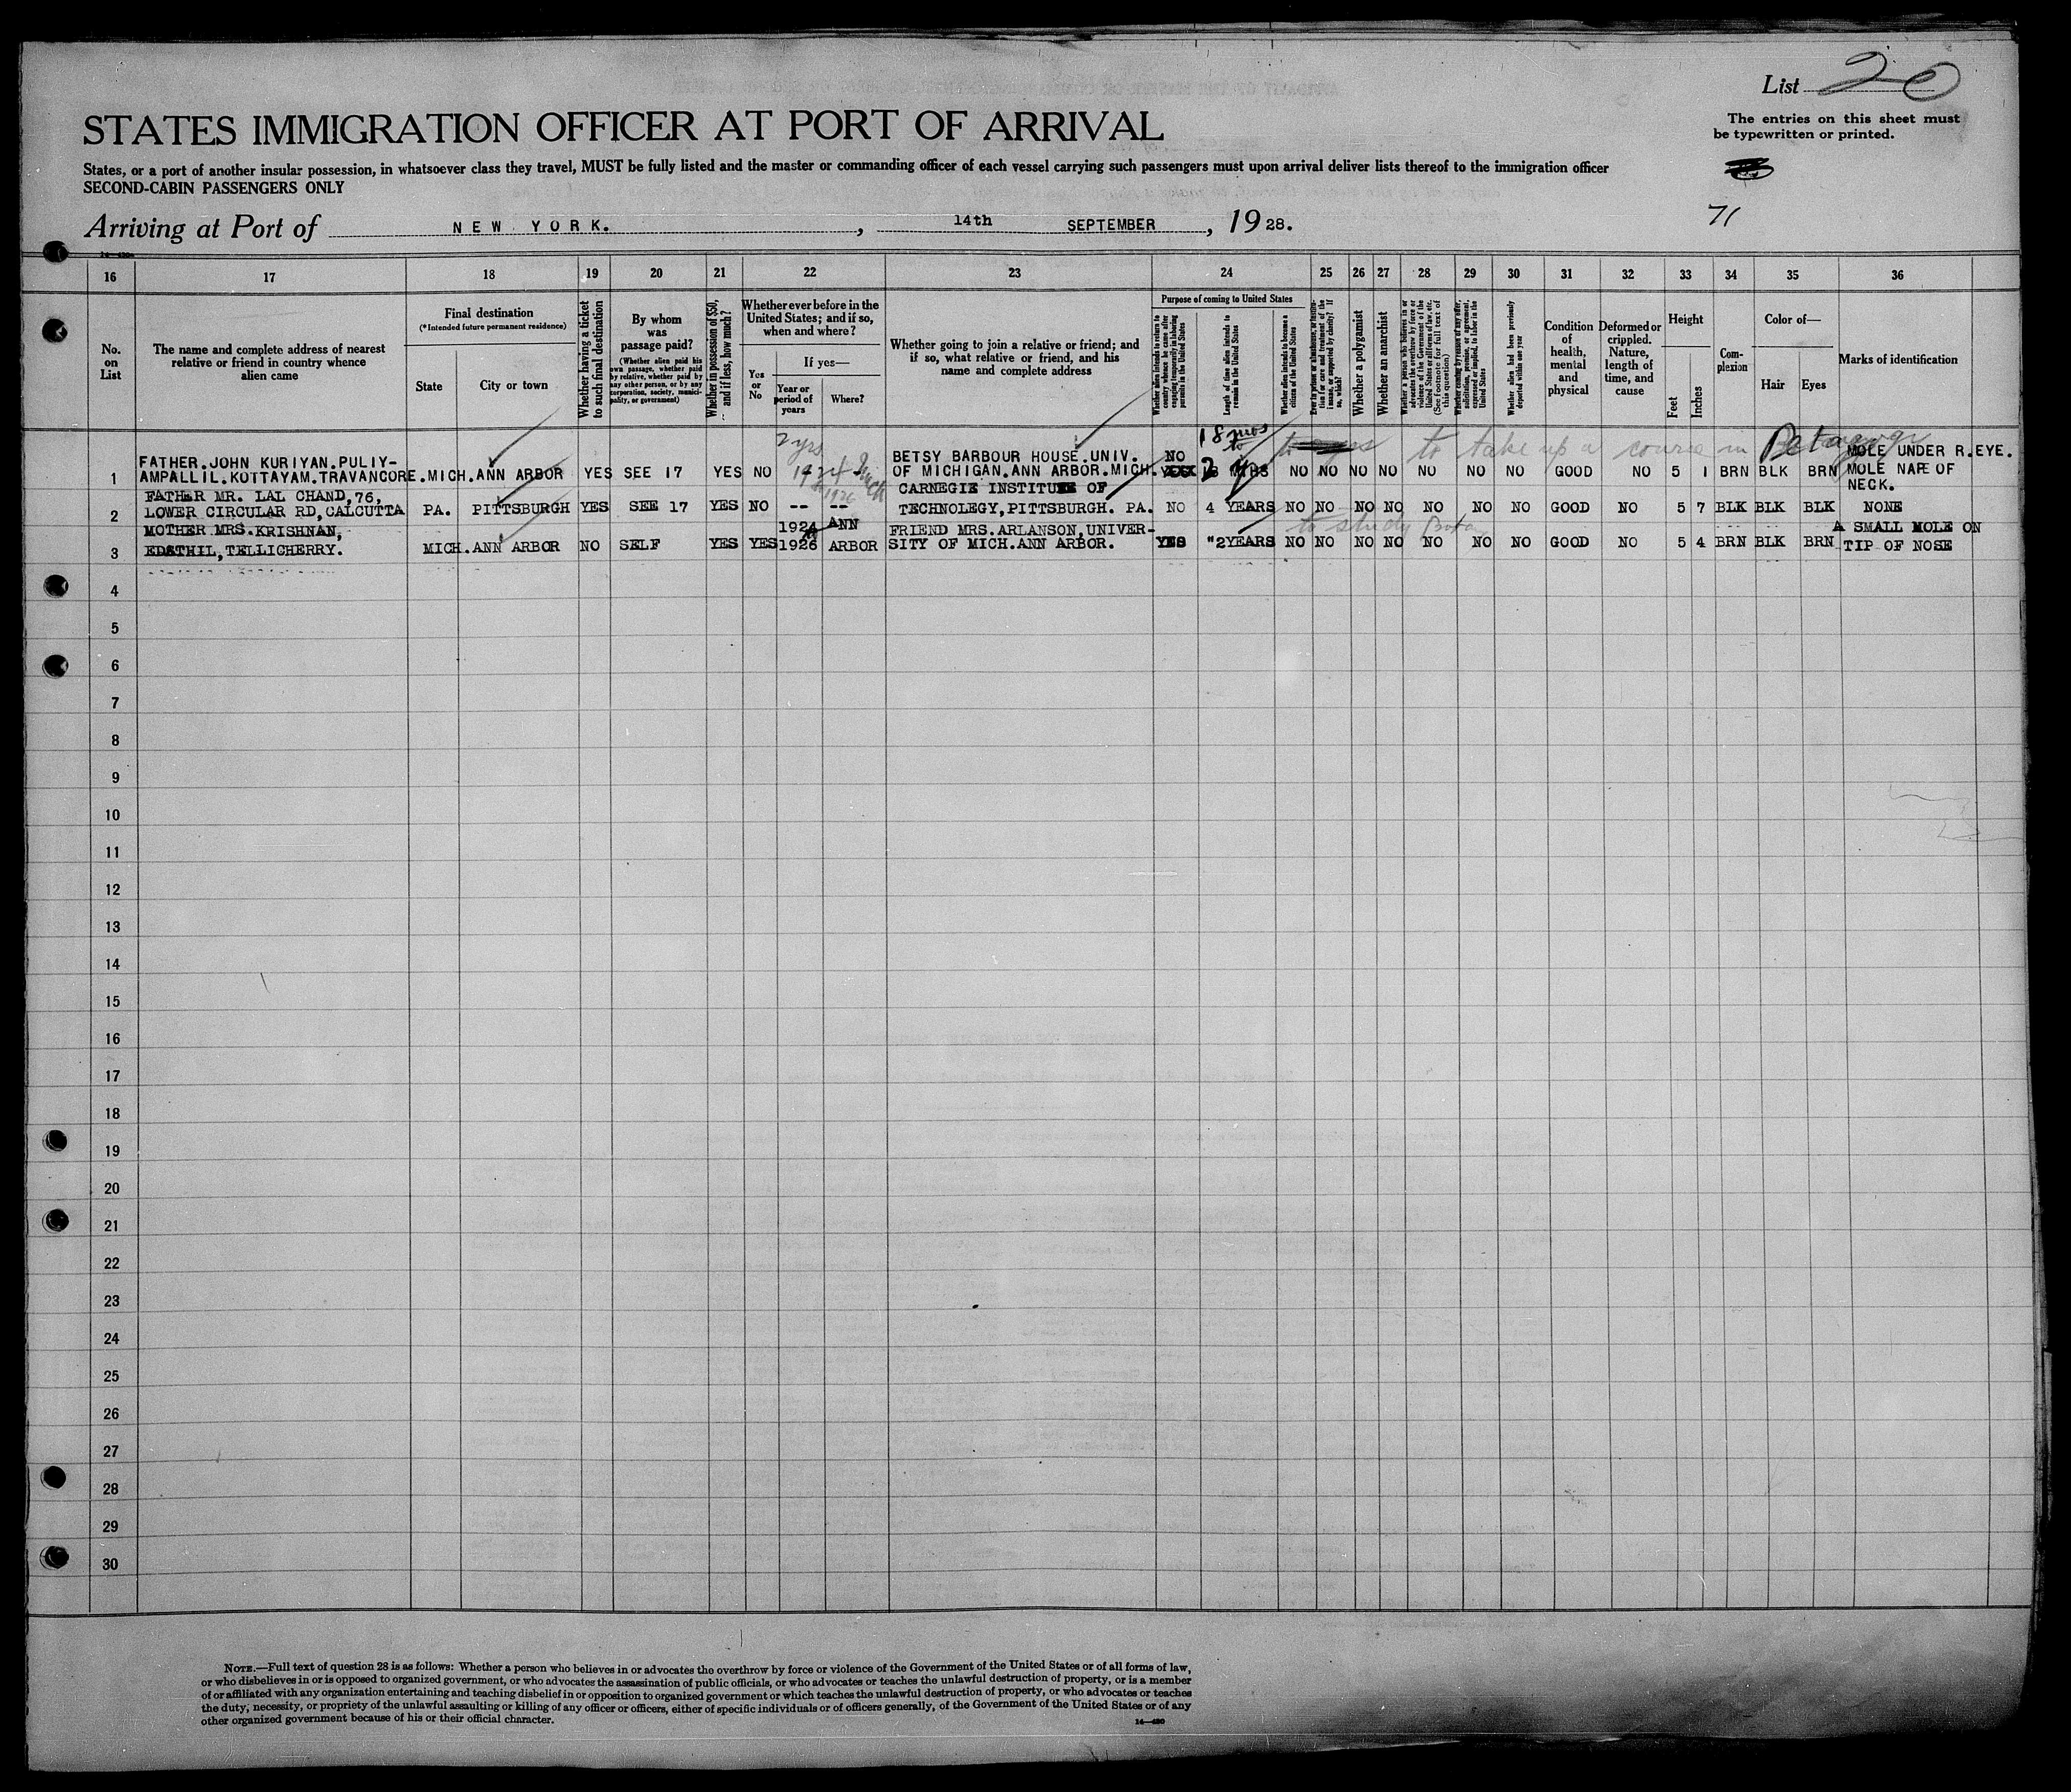 List 20
The entries on this sheet must
be typewritten or printed.
STATES IMMIGRATION OFFICER AT PORT OF ARRIVAL
States, or a port of another insular possession, in whatsoever class they travel, MUST be fully listed and the master or commanding officer of each vessel carrying such passengers must upon arrival deliver lists thereof to the immigration officer
SECOND-CABIN PASSENGERS ONLY
71
Arriving at Port of NEW YORK. , 14th SEPTEMBER , 1928.
16 17 18 19 20 21 22 23 24 25 26 27 28 29 30 31 32 33 34 35 36
No. on List
The name and complete address of nearest
relative or friend in country whence
alien came
Final destination
(*Intended future permanent residence)
State
City or town
Whether having a ticket
to such final destination
By whom
was
passage paid?
(Whether alien paid his
own passage, whether paid
by relative, whether paid by
any other person, or by any
corporation, society, munici-
pality, or government)
Whether in possession of $50,
and if less, how much?
Whether ever before in the
United States; and if so,
when and where?
Yes or No
If yes—
Year or
period of
years
Where?
Whether going to join a relative or friend; and
if so, what relative or friend, and his
name and complete address
Purpose of coming to United States
Whether alien intends to return to
country whence he came after
engaging temporarily in laboring
pursuits in the United States
Length of time alien intends to
remain in the United States
Whether alien intends to become a
citizen of the United States
Ever in prison or almshouse, or institu-
tion for care and treatment of the
insane, or supported by charity? If
so, which?
Whether a polygamist
Whether an anarchist
Whether a person who believes in or
advocates the overthrow by force or
violence of the Government of the
United States or all forms of law, etc.
(See footnote for full text of
this question)
Whether coming by reason of any offer,
solicitation, promise, or agreement,
expressed or implied, to labor in the
United States
Whether alien had been previously
deported within one year
Condition
of
health,
mental
and
physical
Deformed or
crippled.
Nature,
length of
time, and
cause
Height
Feet
Inches
Com-
plexion
Color of—
Hair
Eyes
Marks of identification
2 yrs
18 mos
to take up a course in
FATHER.JOHN KURIYAN.PULIY-
BETSY BARBOUR HOUSE.UNIV. NO
MOLE UNDER R.EYE.
1 AMPALLIL.KOTTAYAM.TRAVANCORE.MICH.ANN ARBOR YES SEE 17 YES NO OF MICHIGAN.ANN ARBOR.MICH. NO NO NO NO NO NO NO GOOD NO 5 1 BRN BLK BRN MOLE NAPE OF
NECK.
FATHER MR. LAL CHAND,76,
CARNEGIE INSTITUTE OF
2 LOWER CIRCULAR RD,CALCUTTA PA. PITTSBURGH YES SEE 17 YES NO -- -- TECHNOLEGY,PITTSBURGH. PA. NO 4 YEARS NO NO NO NO NO NO NO GOOD NO 5 7 BLK BLK BLK NONE
to study
MOTHER MRS.KRISHNAN,
1924 ANN FRIEND MRS.ARLANSON,UNIVER-
A SMALL MOLE ON
3 EDATHIL,TELLICHERRY. MICH.ANN ARBOR NO SELF YES YES 1926 ARBOR SITY OF MICH.ANN ARBOR. YES "2YEARS NO NO NO NO NO NO NO GOOD NO 5 4 BRN BLK BRN TIP OF NOSE
4
5
6
7
8
9
10
11
12
13
14
15
16
17
18
19
20
21
22
23
24
25
26
27
28
29
30
NOTE.—Full text of question 28 is as follows: Whether a person who believes in or advocates the overthrow by force or violence of the Government of the United States or of all forms of law,
or who disbelieves in or is opposed to organized government, or who advocates the assassination of public officials, or who advocates or teaches the unlawful destruction of property, or is a member
of or affiliated with any organization entertaining and teaching disbelief in or opposition to organized government or which teaches the unlawful destruction of property, or who advocates or teaches
the duty, necessity, or propriety of the unlawful assaulting or killing of any officer or officers, either of specific individuals or of officers generally, of the Government of the United States or of any
other organized government because of his or their official character.
14—430